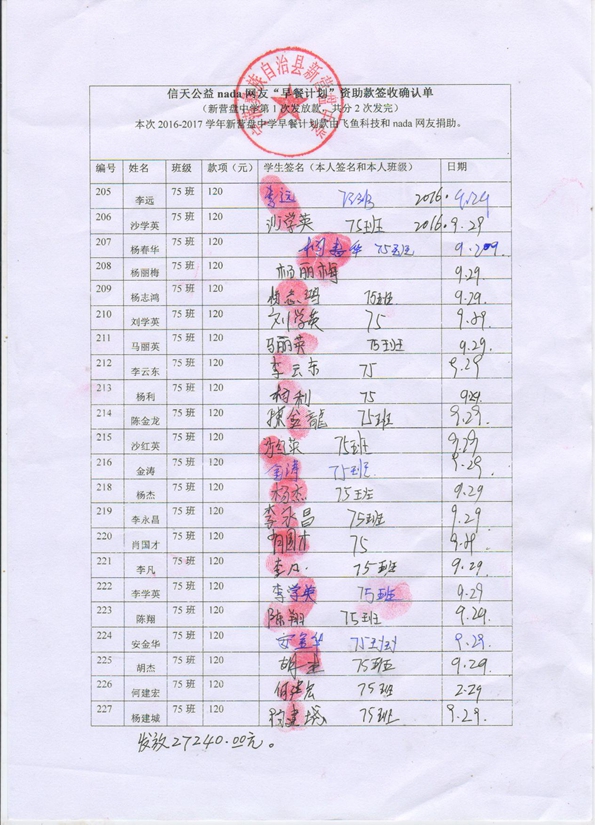 族自治县新营盘中学
信天公益 nada 网友“早餐计划”资助款签收确认单
（新营盘中学第 1 次发放款，共分 2 次发完）
本次 2016-2017 学年新营盘中学早餐计划款由飞鱼科技和 nada 网友捐助。
编号 姓名 班级 款项（元） 学生签名（本人签名和本人班级） 日期
205 李远 75 班 120 李远 75班 2016.9.29
206 沙学英 75 班 120 沙学英 75班 2016.9.29
207 杨春华 75 班 120 杨春华 75班 9.29.
208 杨丽梅 75 班 120 杨丽梅 9.29
209 杨志鸿 75 班 120 杨志鸿 75班 9.29.
210 刘学英 75 班 120 刘学英 75 9.29.
211 马丽英 75 班 120 马丽英 75班 9.29.
212 李云东 75 班 120 李云东 75 9.29
213 杨利 75 班 120 杨利 75 9.29.
214 陈金龙 75 班 120 陳金龍 75班 9.29.
215 沙红英 75 班 120 75班 9.29
216 金涛 75 班 120 金涛 75班 9.29
218 杨杰 75 班 120 杨杰 75班 9.29
219 李永昌 75 班 120 李永昌 75班 9.29
220 肖国才 75 班 120 肖国才 75 9.29
221 李凡 75 班 120 李凡 75班 9.29
222 李学英 75 班 120 李学英 75班 9.29
223 陈翔 75 班 120 陈翔 75班 9.29
224 安金华 75 班 120 安金华 75班 9.29.
225 胡杰 75 班 120 胡杰 75班 9.29
226 何建宏 75 班 120 何建宏 75班 2.29
227 杨建城 75 班 120 杨建城 75班 9.29.
发放27240.00元。